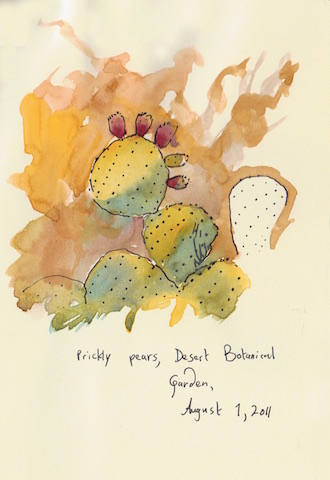 Prickly pears, Desert Botanical
Garden,
August 1, 2011